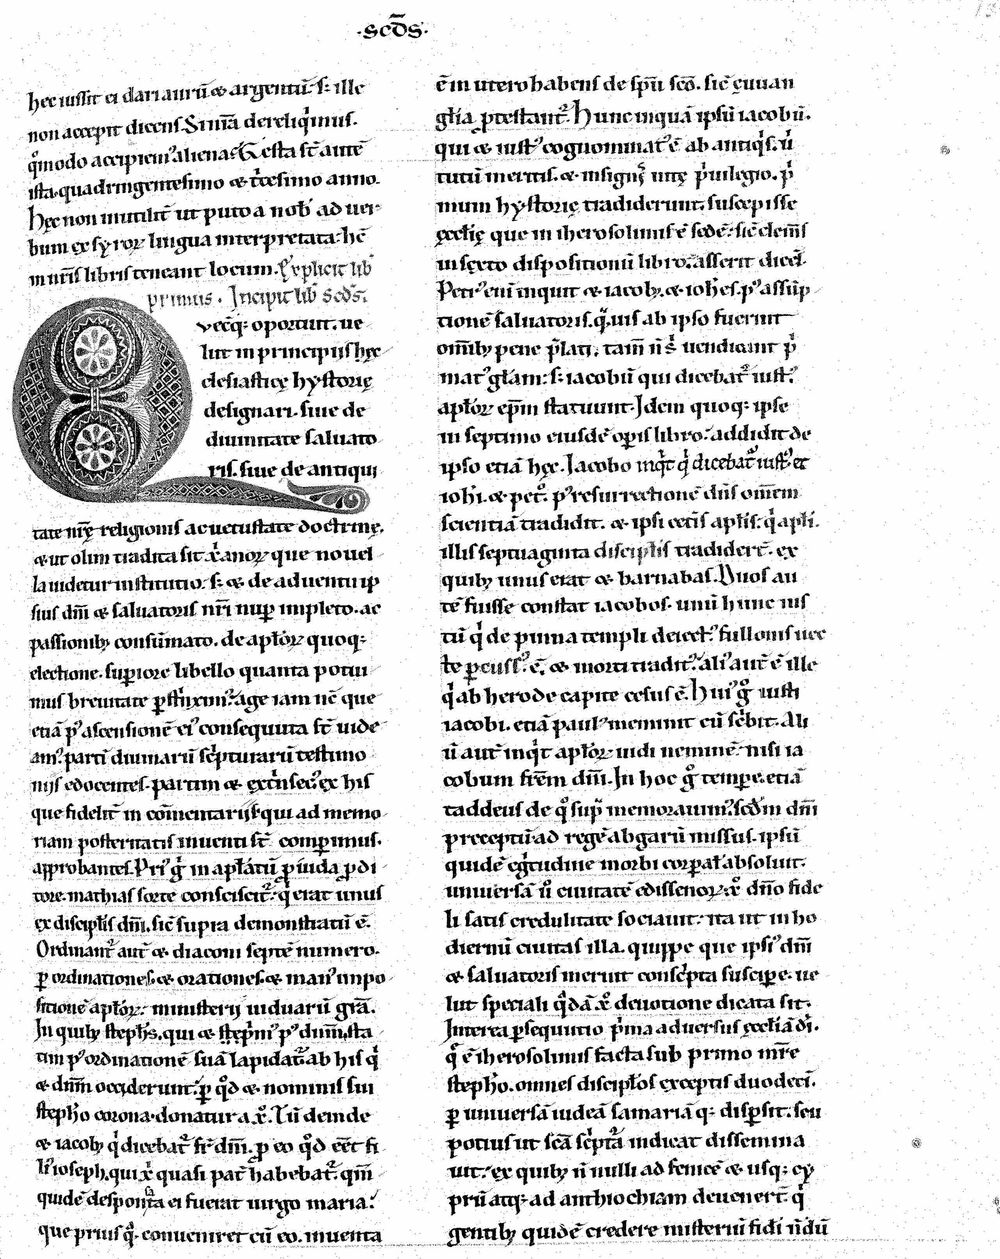 ·SCD̄S·
hec iussit ei dari aurū & argentū. s: ille
non accepit dicens. Si n̄ra dereliq̇imus.
q̊modo accipiem᾽ aliena? Gesta st̄ autē
ista. quadringentesimo & t̄cesimo anno.
Hęc non inutilit̄ ut puto a nob᾽ ad uer
bum ex syroꝝ lingua interpretata. hē
in nr̄is libris teneant locum. Explicit lib̄
primus. Incipit lib̄ scd̄s.
Quecq; oportuit. ue
lut in principiis hęc
clesiasticę hystorię
designari. siue de
diuinitate saluato
ris. siue de antiqui
tate nr̄ę religionis ac uetustate doctrinę.
& ut olim tradita sit xr̄anoꝝ que nouel
la uidetur institutio. s: & de aduentu ip
sius dn̄i & saluatoris nr̄i nup̄ impleto. ac
passionib; consūmato. de apl̄oꝝ quoq;
electione. sup̄iore libello quanta potui
mus breuitate p̄strinxim᾽. age iam nc̄ que
etiā p᾽ ascensionē ei᾽ consequuta st̄ uide
am᾽. partī diuinarū sc̄pturarū testimo
niis edocentes. partim & ext̄nsec᾽ ex his
que fidelit̄ in cōmentariis. qui ad memo
riam posteritatis inuenti st̄ comp̄imus.
approbantes. Pri᾽ g᾽ in apl̄atū p̄ iuda p̄di
tore. mathias sorte consciscit᾽. q̇ erat unus
ex disciplīs dn̄i. sic̄ supra demonstratū ē.
Ordinant᾽ aut̄ & diaconi septē numero.
p̄ ordinationes. & orationes. & man᾽ impo
sitionē apl̄oꝝ. ministerii uiduarū grā.
In quib; steph̄s. qui & p᾽ dn̄m. sta
tim p᾽ ordinationē suā lapidat᾽ ab his q̇
& dn̄m occiderunt. p̄ qd̄ & nominis sui
stepho corona donatur a xp̄o. Tū deinde
& iacob; q̇ dicebat᾽ fr̄ dn̄i. p̄ eo qd̄ eēt fi
li᾽ ioseph. qui xp̄i quasi pat̄ habebat᾽. qm̄
quidē desponsata ei fuerat uirgo maria.
que prius q̄ conueniret cū eo. inuenta
ē in utero habens de sp̄u scō. sic̄ euuan
glīa p̄testant᾽. Hunc inquā ipsū iacobū.
qui & iust᾽ cognominat᾽ ē ab antiq̇s. ū
tutū meritis. & insignis uitę p̄uilegio. p̄
mum hystorię tradiderunt. suscepisse
ęccl̄ię que in iherosolimis ē sedē. sic̄ clem̄s
in sexto dispositionū libro. asserit dicēs.
Petr᾽ eni inquit & iacob;. & ioh̄es. p᾽ assūp
tionē saluatoris. q̄uis ab ipso fuerint
omīb; pene p̄lati. tam̄ n̄ s᾽ uendicant p̄
mat᾽ gl̄am. s: iacobū qui dicebat᾽ iust᾽
apl̄oꝝ ep̄m statuunt. Idem quoq; ipse
in septimo eiusdē op̄is libro. addidit de
ipso etiā hęc. Iacobo inqt᾽ q̇ dicebat᾽ iust᾽. et
ioh̄i. & pet᾽. p᾽ resurrectione dn̄s om̄em
scientiā tradidit. & ipsi cet̄is apl̄is. q̇ apl̄i.
illis septuaginta discipl̄is tradider̄t. ex
quib; unus erat & barnabas. Duos au
tē fuisse constat iacobos. unū hunc ius
tū q̇ de pinna templi deiect᾽. fullonis uec
te p̄cuss᾽ ē. & morti tradit᾽. ali᾽ aut̄ ē ille
q̇ ab herode capite cesus ē. Hui᾽ g᾽ iusti
iacobi. etiā paul᾽ meminit cū sc̄bit. Ali
ū aut̄ inqt᾽ apl̄oꝝ uidi neminē. nisi ia
cobum frēm dn̄i. In hoc g᾽ tempe. etiā
taddeus de q̊ sup̄ memorauim᾽. scd̄m dn̄i
preceptū ad regē abgarū missus. ipsū
quidē egritudine morbi corp̄al᾽ absoluit.
uniuersā u᾽ ciuitatē edissenoꝝ xp̄o dn̄o fide
li satis credulitate sociauit. ita ut in ho
diernū ciuitas illa. quippe que ipsi᾽ dn̄i
& saluatoris meruit consc̄pta suscipe. ue
lut speciali q̇dā xp̄o deuotione dicata sit.
Interea p̄sequutio p̄ma aduersus ęccl̄iā dī.
q̇ ē iherosolimis facta sub primo mr̄e
stepho. omnes discipl̄os exceptis duodeci.
p̄ uniuersā iudeā samariā q; disp̄sit. seu
potius ut sc̄ā sc̄pt᾽a indicat dissemina
uit. ex quib; n̄ nulli ad fenicē & usq; cy
prū atq; ad anthiochiam deuener̄t. q̇
gentib; quidē credere misteriū fidi n̄dū